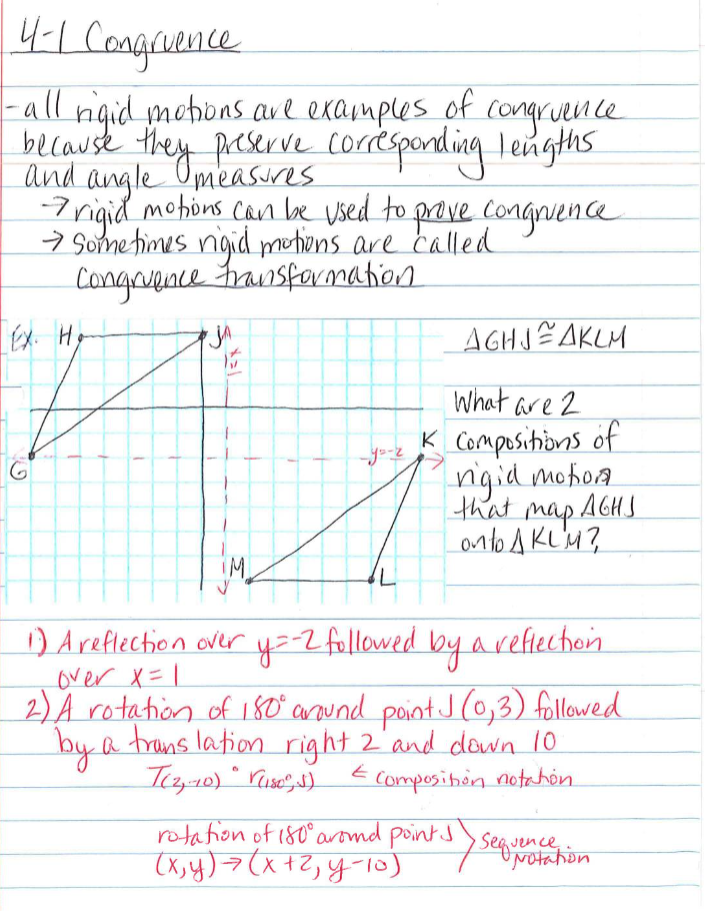 4-1 Congruence
-all rigid motions are examples of congruence
because they preserve corresponding lengths
and angle measures
→ rigid motions can be used to prove congruence
→ Sometimes rigid motions are called
Congruence transformation
Ex. H J
x=1
G
y=-2 K
M L
△GHJ≅△KLM
What are 2
compositions of
rigid motion
that map △GHJ
onto △KLM?
1) A reflection over y=-2 followed by a reflection
over x=1
2) A rotation of 180° around point J (0,3) followed
by a translation right 2 and down 10
T(2,-10) ° r(180°, J) ← composition notation
rotation of 180° around point J
(x,y)→(x+2, y-10)
Sequence
Notation